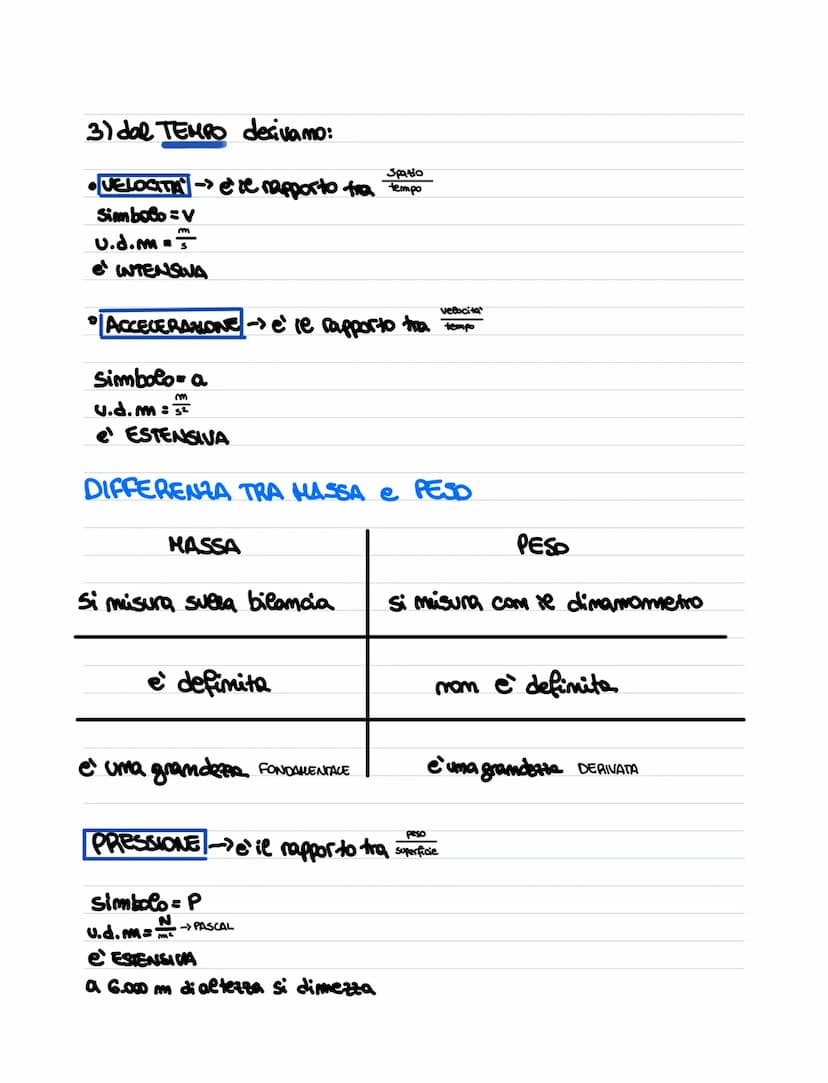 3) dal TEMPO derivamo:
• VELOCITA' → e' il rapporto tra spazio/tempo
simbolo = v
u.d.m = m/s
e' INTENSIVA
• ACCELERAZIONE → e' il rapporto tra velocita'/tempo
simbolo = a
u.d.m = m/s²
e' ESTENSIVA
DIFFERENZA TRA MASSA e PESO
MASSA PESO
si misura sulla bilancia si misura con il dinamometro
e' definita non e' definita
e' una grandezza FONDAMENTALE e' una grandezza DERIVATA
PRESSIONE → e' il rapporto tra peso/superficie
simbolo = P
u.d.m = N/m² → PASCAL
e' ESTENSIVA
a 6.000 m di altezza si dimezza